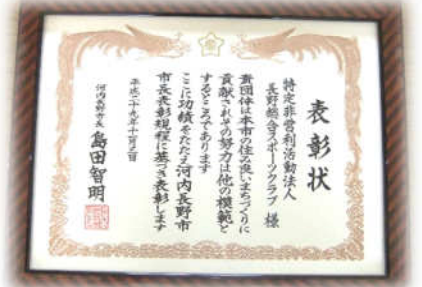 表彰状
特定非営利活動法人
長野総合スポーツクラブ 様
貴団体は本市の住み良いまちづくりに
貢献されその努力は他の模範と
するところであります
ここに功績をたたえ河内長野市
市長表彰規程に基づき表彰します
平成二十九年十一月三日
河内長野市長 島田智明